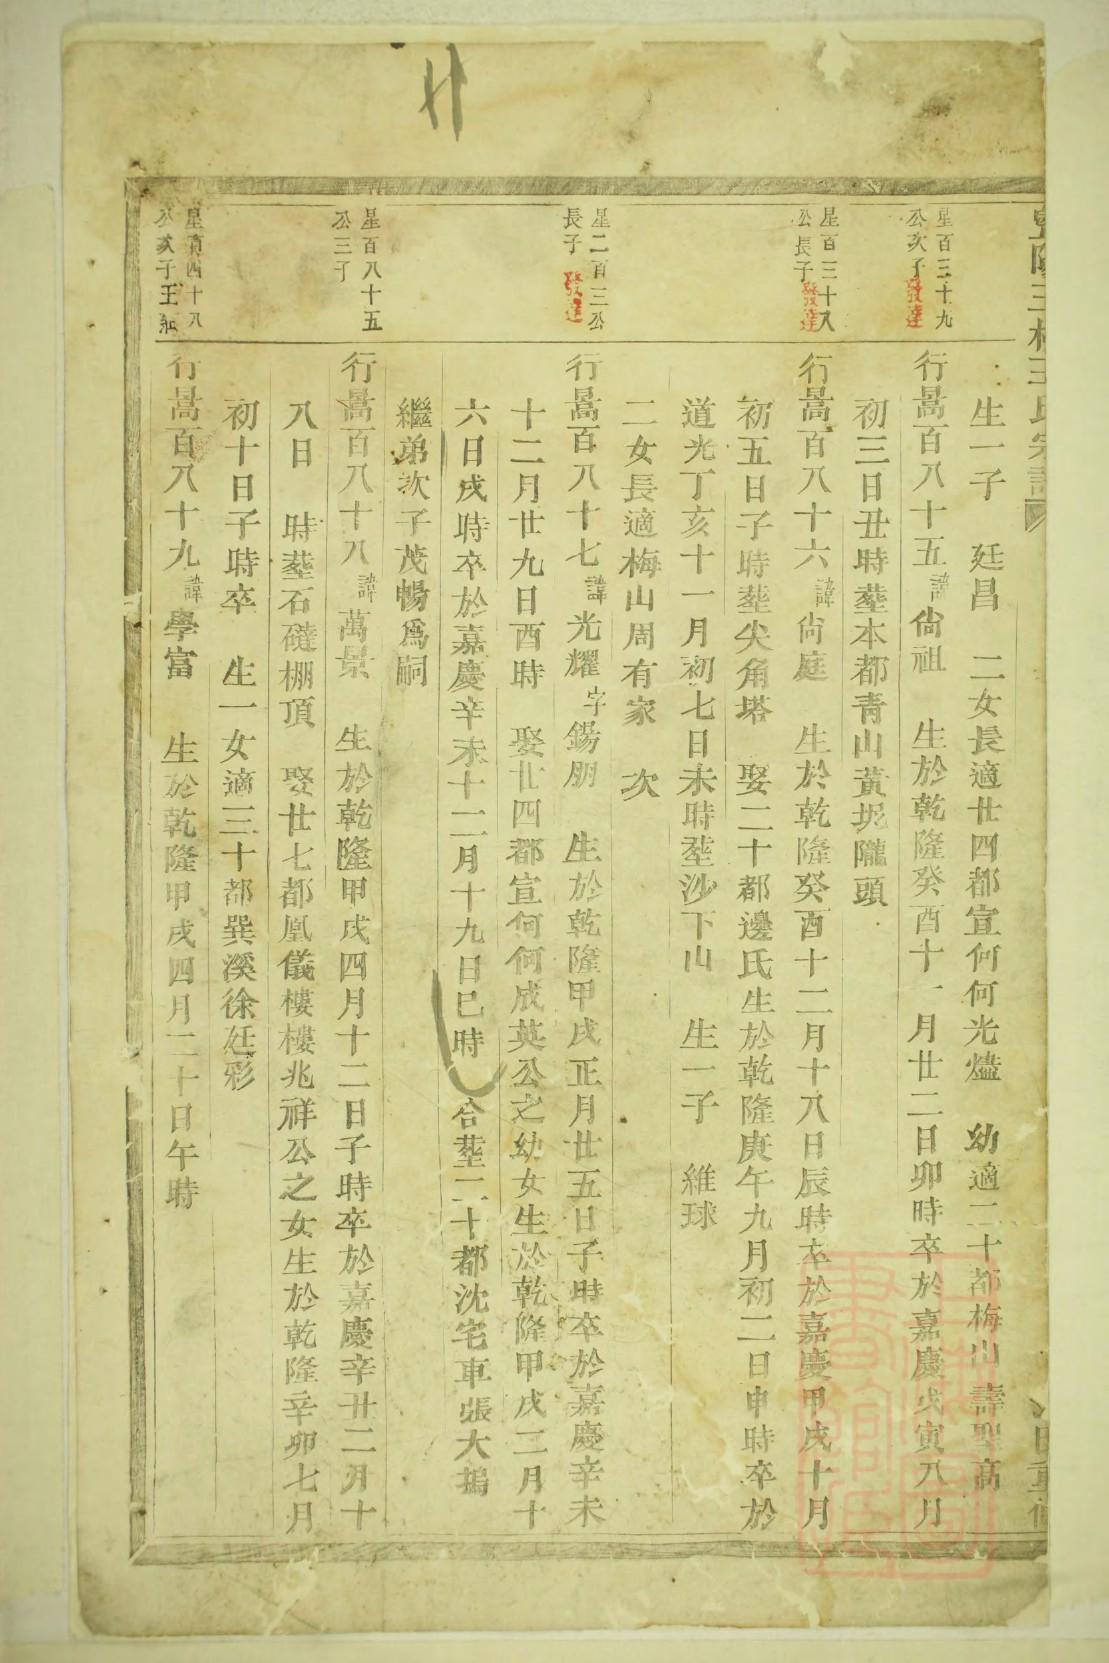 生一子 廷昌 二女長適廿四都宣何何光爐 幼適二十都梅山壽聖高
星百三十九
公次子發達
行暠百八十五諱尙祖 生於乾隆癸酉十一月廿二日卯時卒於嘉慶戊寅八月
初三日丑時塟本都青山黃坭隴頭
星百三十八
公長子發達
行暠百八十六諱尙庭 生於乾隆癸酉十二月十八日辰時卒於嘉慶甲戌十月
初五日子時塟尖角塔 娶二十都邊氏生於乾隆庚午九月初二日申時卒於
道光丁亥十一月初七日未時塟沙下山 生一子 維球
二女長適梅山周有家 次
星二百三公
長子發達
行暠百八十七諱光耀字錫朋 生於乾隆甲戌正月廿五日子時卒於嘉慶辛未
十二月廿九日酉時 娶廿四都宣何何成英公之幼女生於乾隆甲戌二月十
六日戌時卒於嘉慶辛未十二月十九日巳時 合塟二十都沈宅車張大塢
繼弟次子茂暢爲嗣
星百八十五
公三子
行暠百八十八諱萬景 生於乾隆甲戌四月十二日子時卒於嘉慶辛丑二月十
八日 時塟石磋棚頂 娶廿七都鳳儀樓樓兆祥公之女生於乾隆辛卯七月
初十日子時卒 生一女適三十都巽溪徐廷彩
星百四十八
公次子王
行暠百八十九諱學富 生於乾隆甲戌四月二十日午時